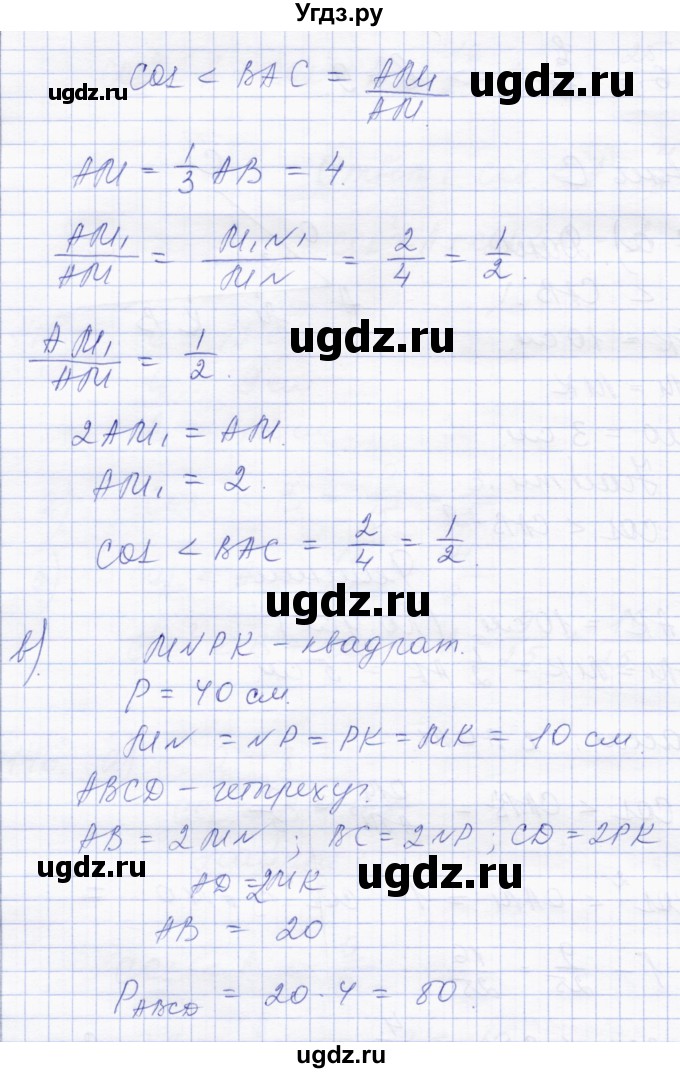 Угдз.ру
cos < BAC = AM₁/AM.
ugdz.ru ugdz.ru
AM = 1/3 AB = 4.
AM₁/AM = M₁N₁/MN = 2/4 = 1/2.
ugdz.ru
AM₁/AM = 1/2.
2AM₁ = AM.
AM₁ = 2.
cos < BAC = 2/4 = 1/2.
ugdz.ru
в) MNPK - квадрат.
P = 40 см.
MN = NP = PK = MK = 10 см.
ABCD - четрехуг.
AB = 2MN ; BC = 2NP ; CD = 2PK
ugdz.ru ugdz.ru
AD = 2MK
AB = 20
P_ABCD = 20 · 4 = 80.
ugdz.ru